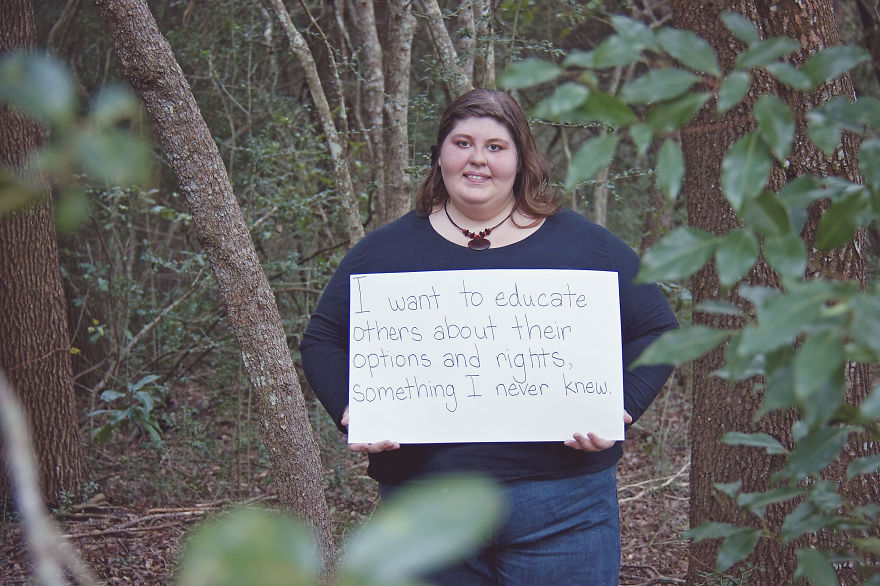 I want to educate
others about their
options and rights,
something I never knew.